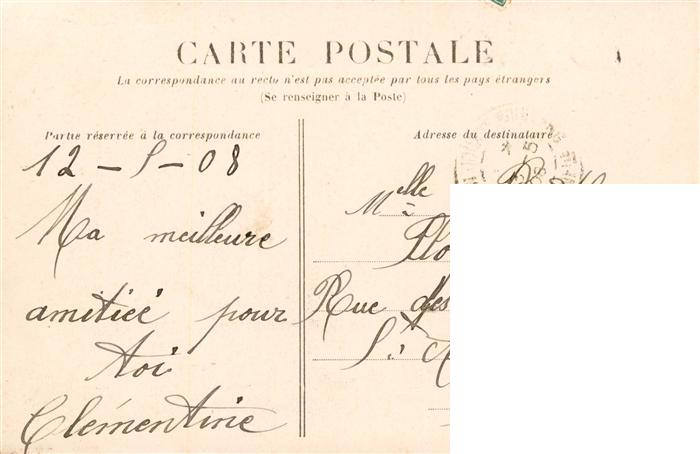 CARTE POSTALE
La correspondance au recto n'est pas acceptée par tous les pays étrangers
(Se renseigner à la Poste)
Partie réservée à la correspondance
12 - 5 - 08
Ma meilleure
amitiée pour
toi
Clémentine
Adresse du destinataire
Melle
Rue des